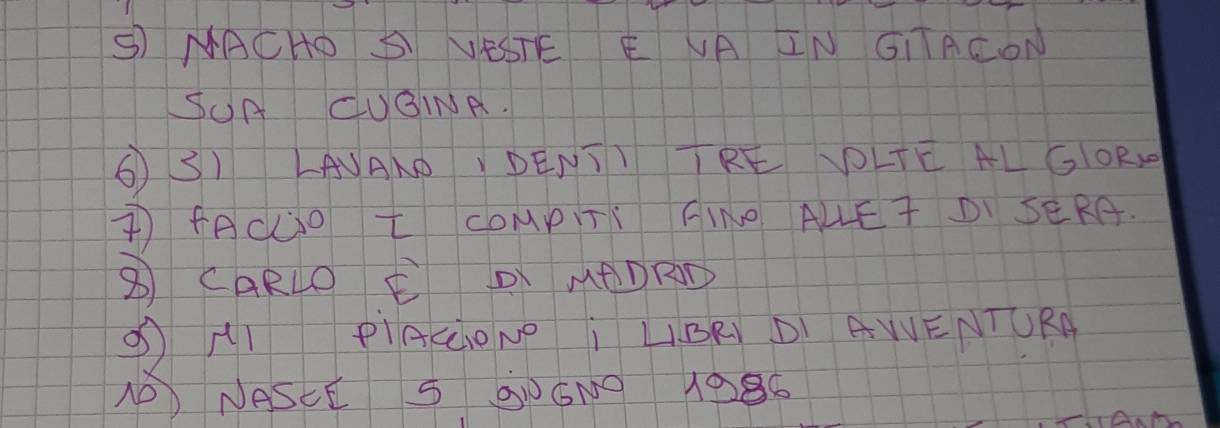 5) NACHO SI VESTE E VA IN GITA CON
SUA CUGINA.
6) SI LAVANO I DENTI TRE VOLTE AL GIORNO
7) FACCIO I COMPITI FINO ALLE 7 DI SERA.
8) CARLO È DI MADRID
9) MI PIACCIONO i LIBRI DI AVVENTURA
10) NASCE 5 giUGNO 1986